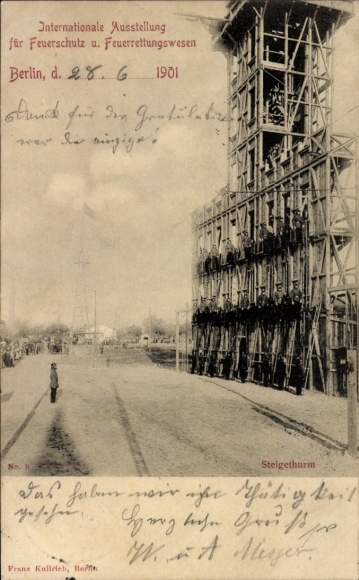 Internationale Ausstellung
für Feuerschutz u. Feuerrettungswesen
Berlin, d. 28. 6. 1901
Dank für die Gratulation
war die einzige!
No. 8
Steigethurm
Das haben wir ihre Thätigkeit
gesehn. Herzliche Gruß
W. u. A Meyer.
Franz Kullrich, Berlin